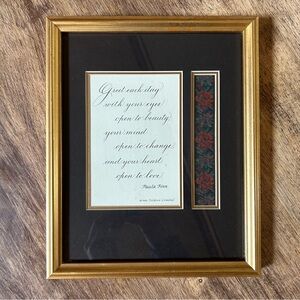 Greet each day
with your eyes
open to beauty,
your mind
open to change,
and your heart
open to love.
Paula Finn